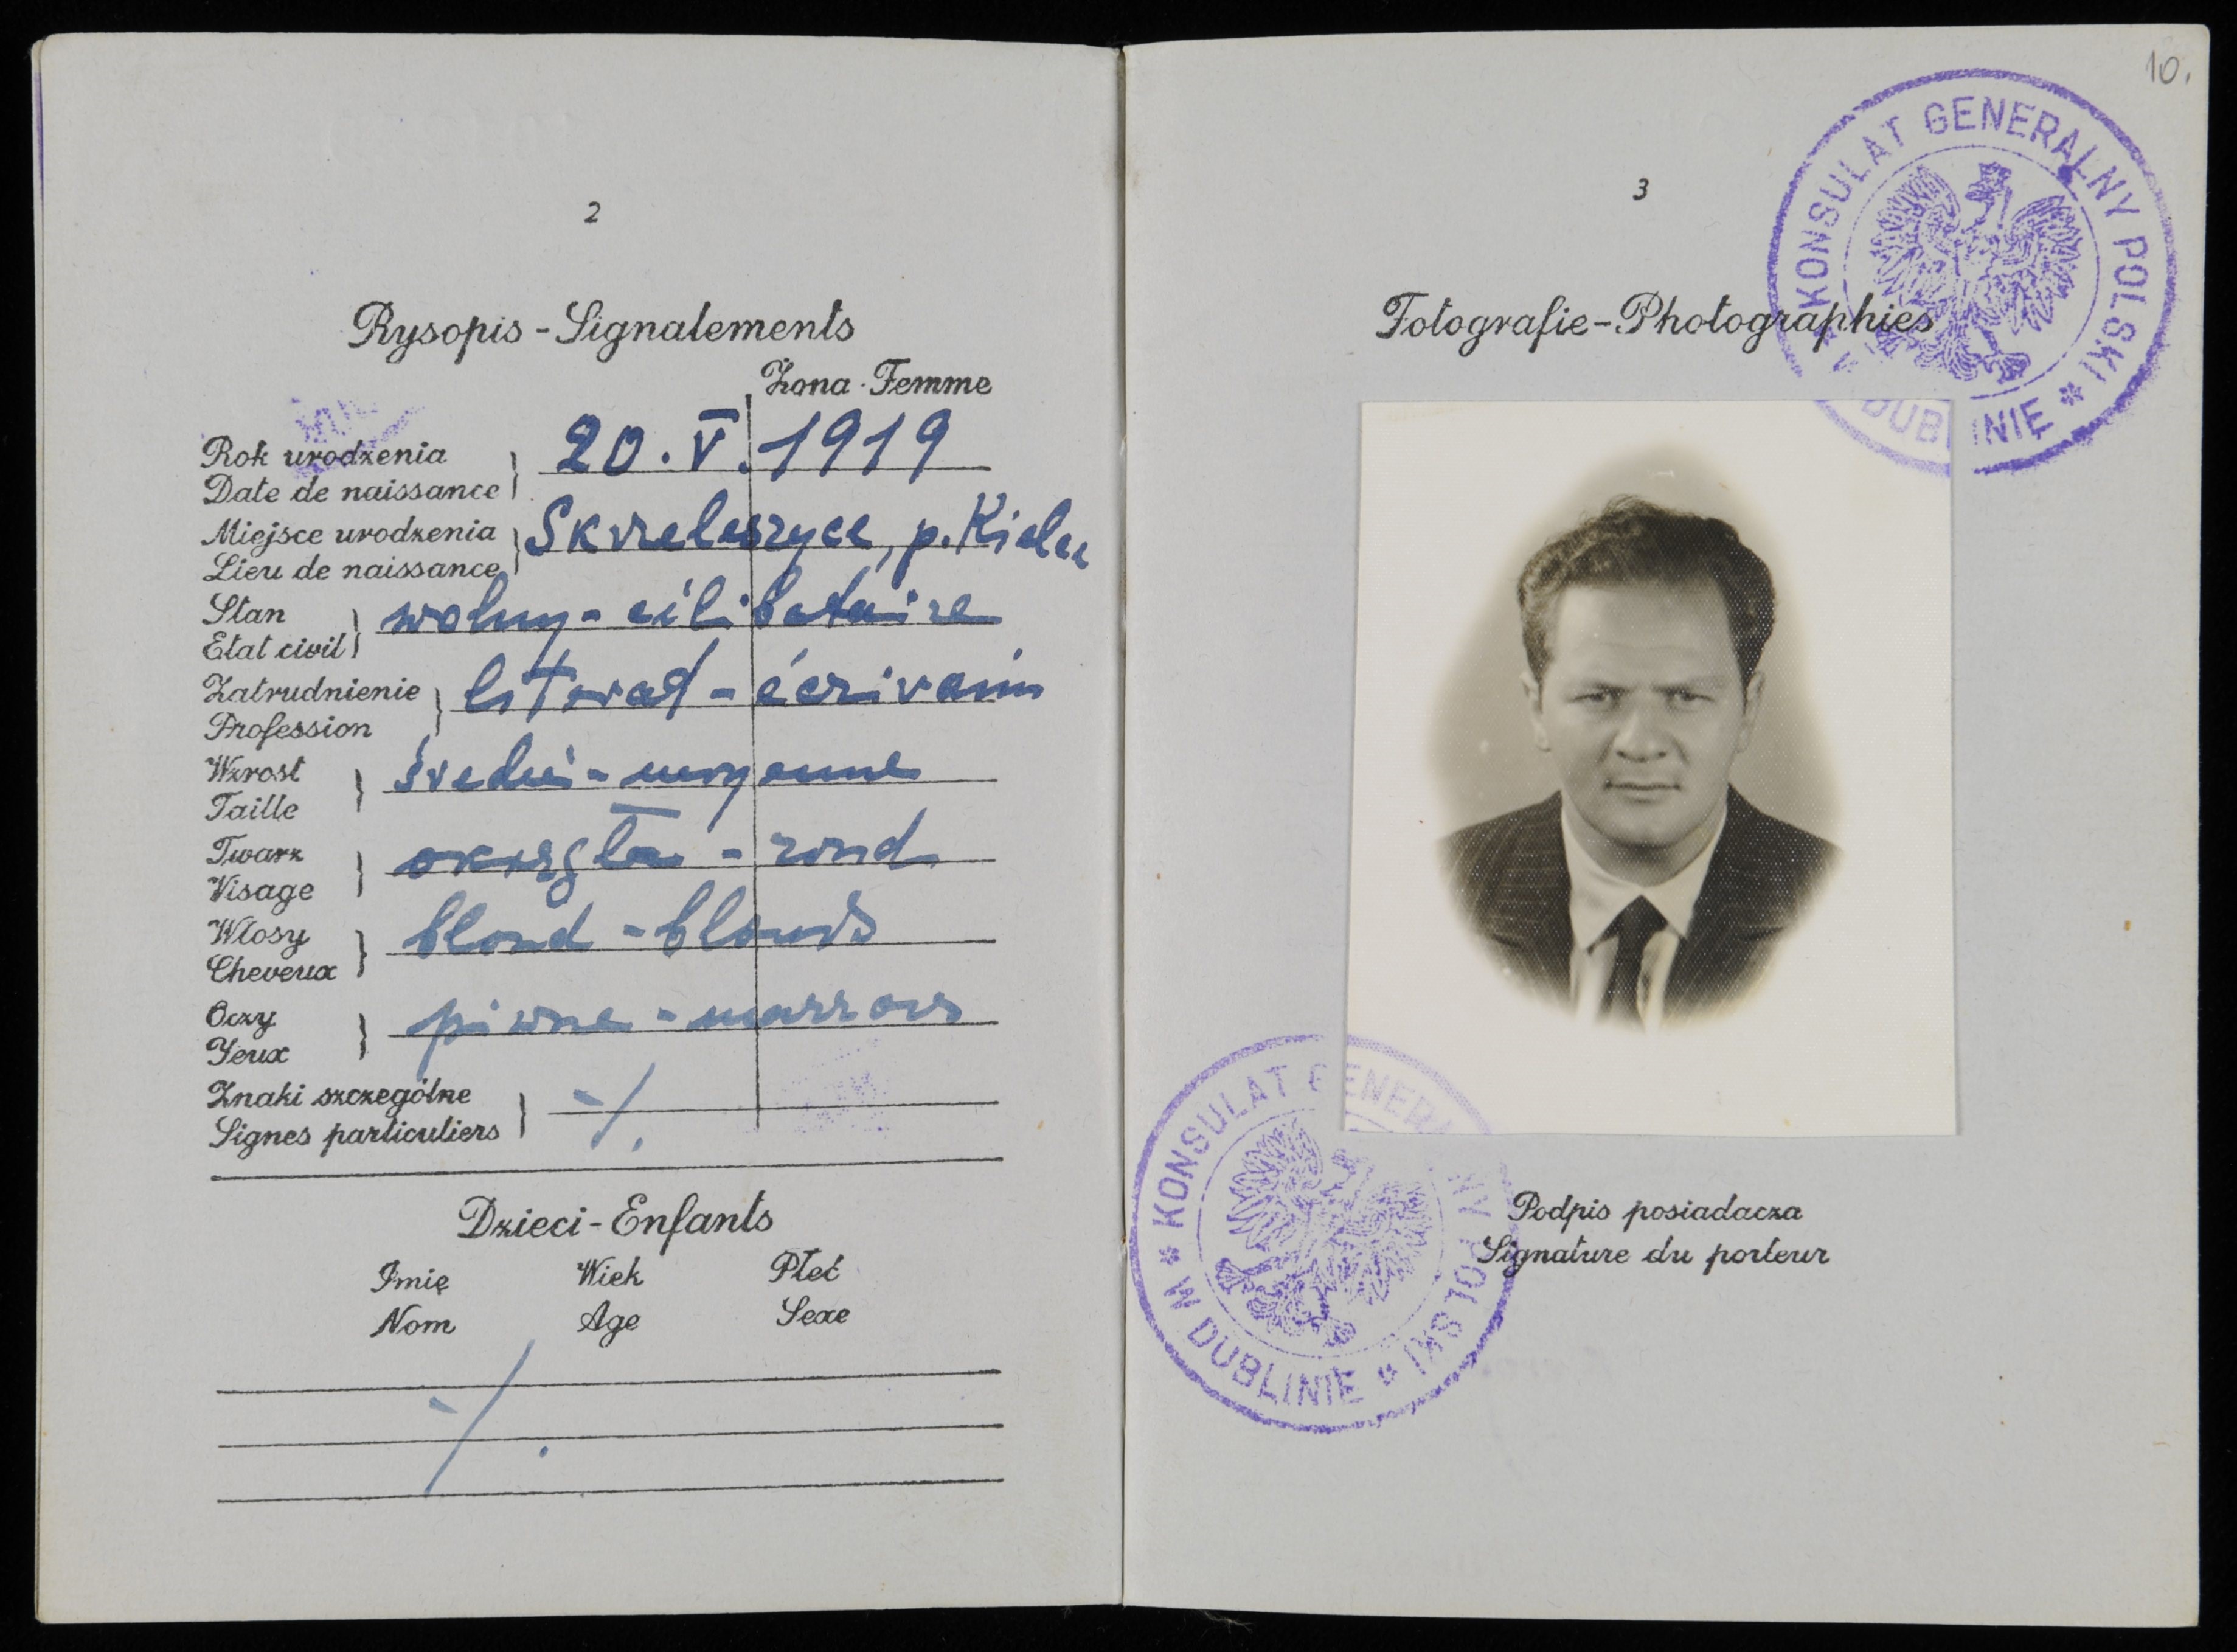 2
Rysopis - Signalements
Żona - Femme
Rok urodzenia
Date de naissance
20. V. 1919
Miejsce urodzenia
Lieu de naissance
Skrzelczyce, p. Kielce
Stan
Etat civil
wolny - célibataire
Zatrudnienie
Profession
literat - écrivain
Wzrost
Taille
średni - moyenne
Twarz
Visage
okrągła - rond
Włosy
Cheveux
blond - blonds
Oczy
Yeux
piwne - marrons
Znaki szczególne
Signes particuliers
-/.
Dzieci - Enfants
Imię Wiek Płeć
Nom Age Sexe
-/.
10.
3
KONSULAT GENERALNY POLSKI * W DUBLINIE *
Fotografie - Photographies
KONSULAT GENERALNY POLSKI * W DUBLINIE *
Podpis posiadacza
Signature du porteur